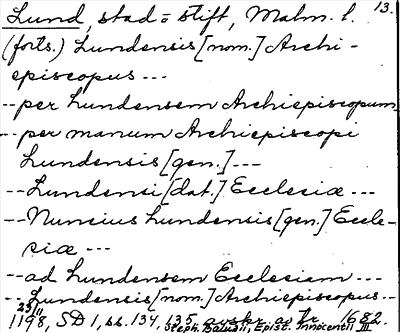 Lund, stad o stift, Malm. l. 13.
(forts.) Lundensis [nom.] Archi-
episcopus ---
-- per Lundensem Archiepiscopum
-- per manum Archiepiscopi
Lundensis [gen.] ---
-- Lundensi [dat.] Ecclesiæ ---
-- Nuncius Lundensis [gen.] Eccle-
siæ ---
-- ad Lundensem Ecclesiam ---
-- Lundensis [nom.] Archiepiscopus --
23/11
1198, SD 1, ss. 134, 135, avskr. av tr. 1682.
Steph. Baluzii, Epist. Innocentii III